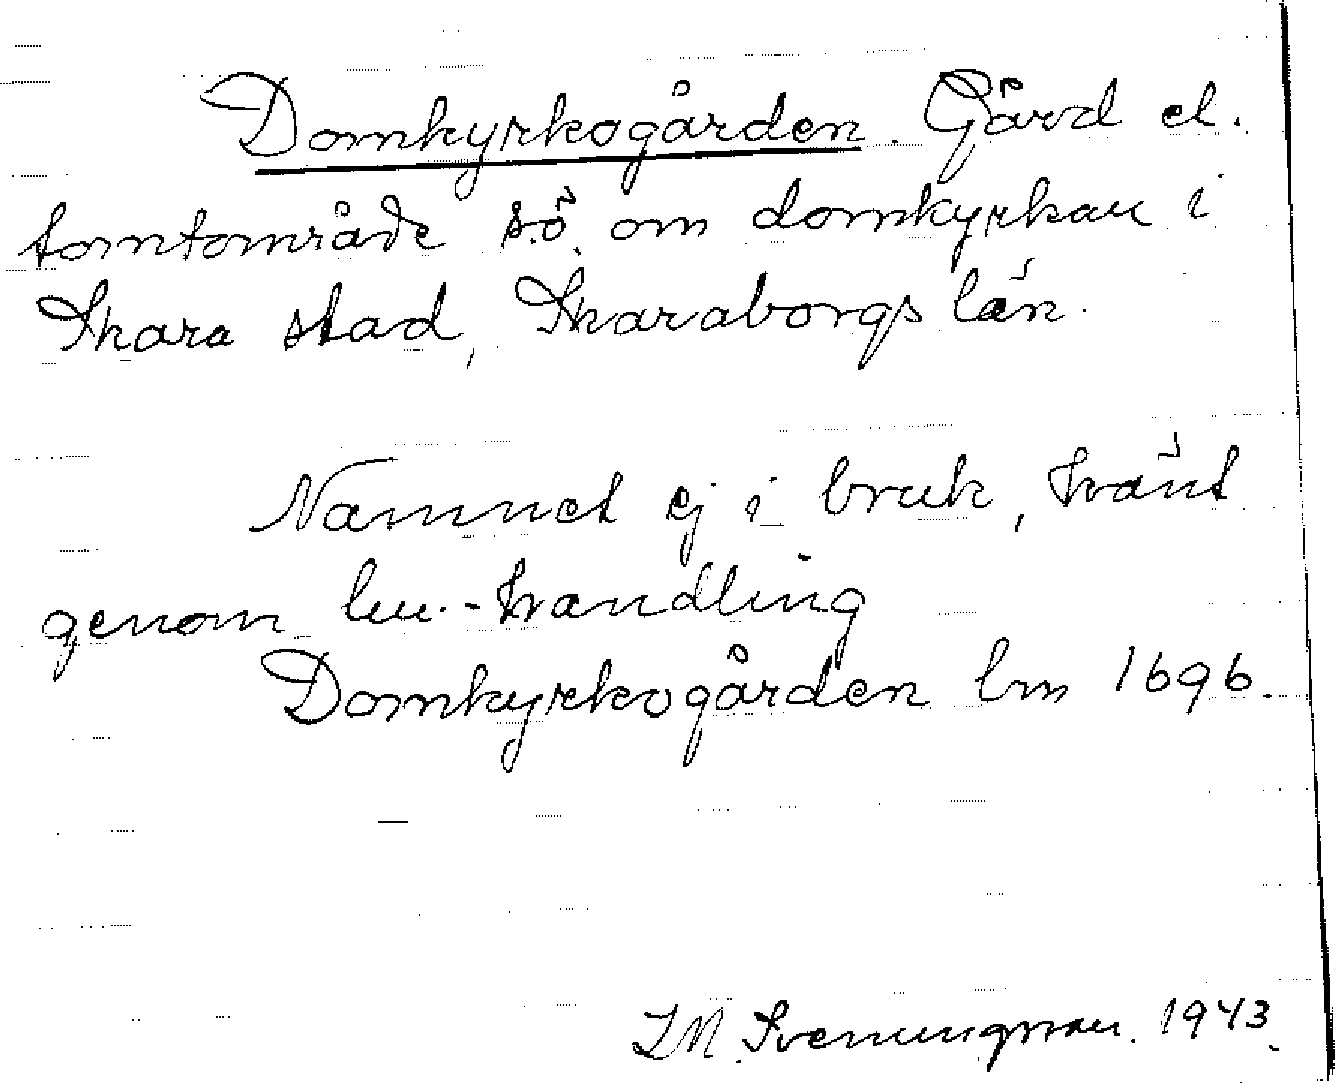 Domkyrkogården. Gård el.
tomtområde s.ö. om domkyrkan i
Skara stad, Skaraborgs län.
Namnet ej i bruk, känt
genom lm.-handling
Domkyrkogården lm 1696.
I M. Svenungsson. 1943.